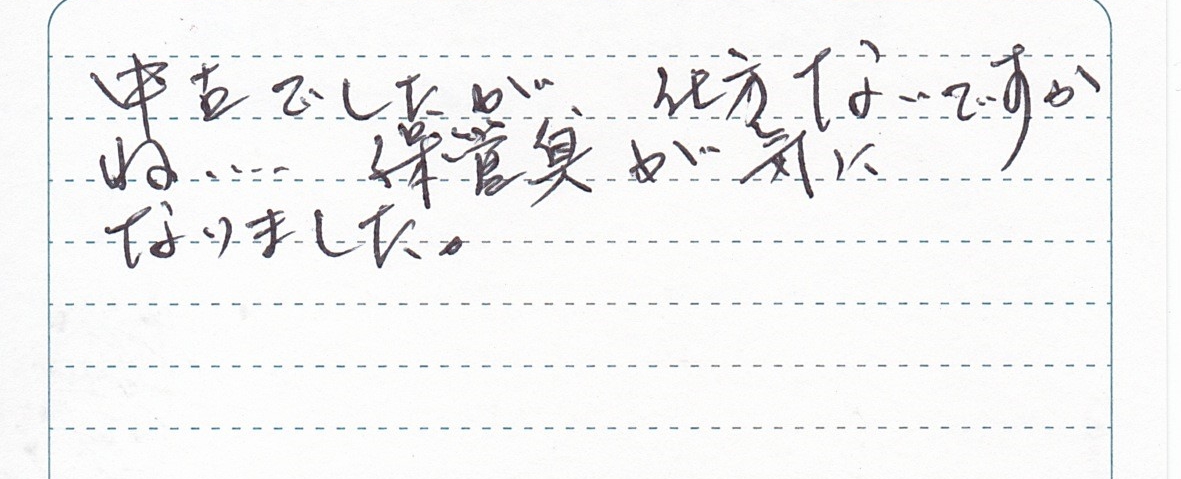 中古でしたが、仕方ないですか
ね…… 保管臭が気に
なりました。